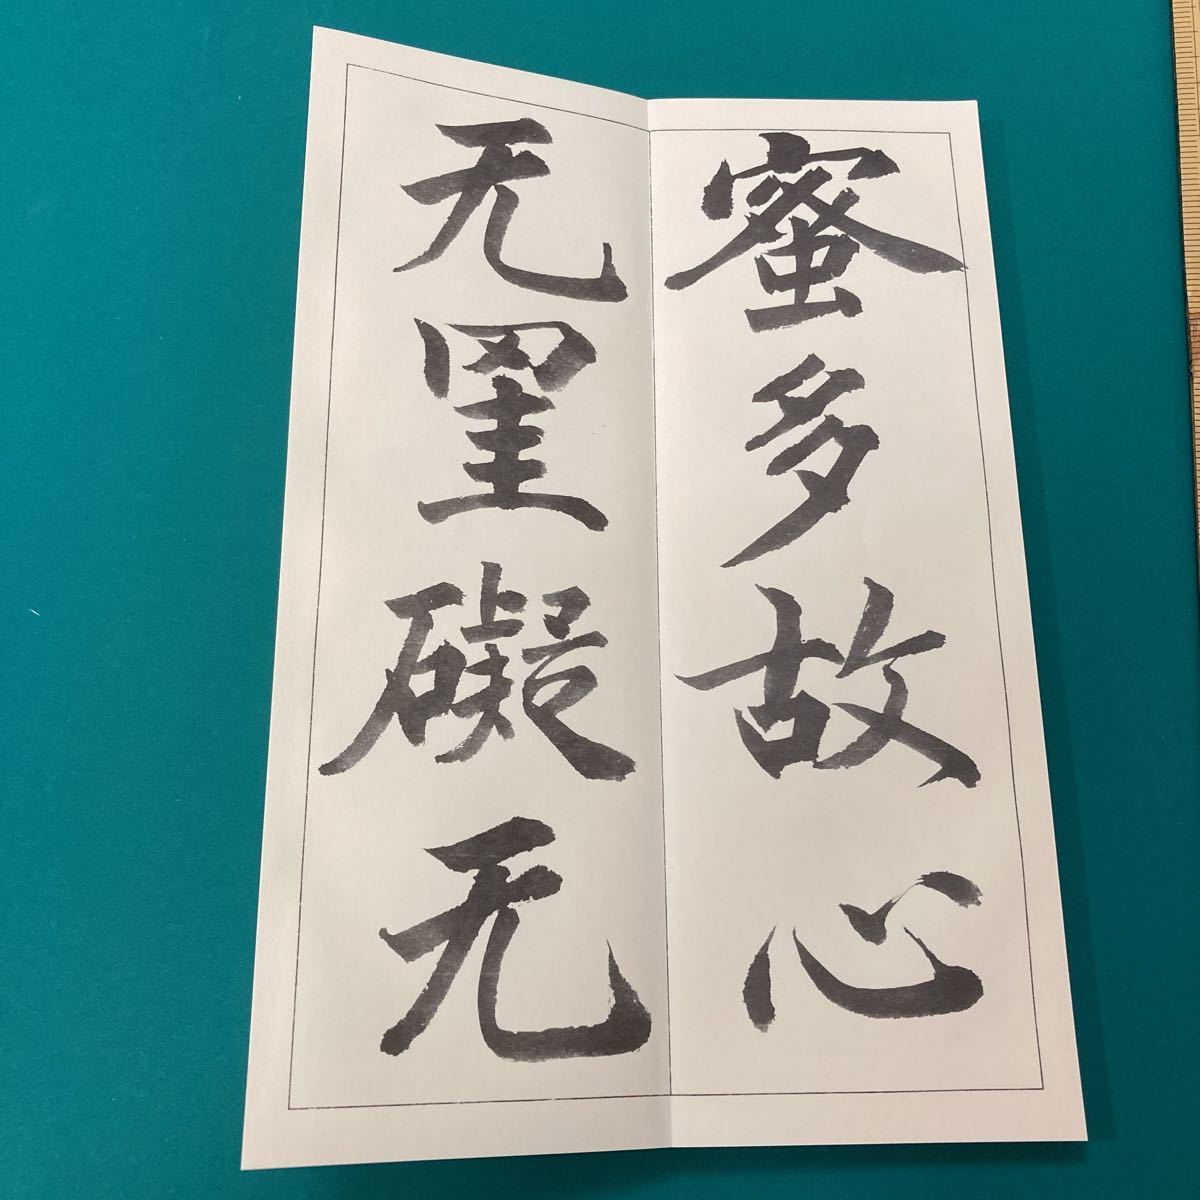 蜜多故心
无罣礙无